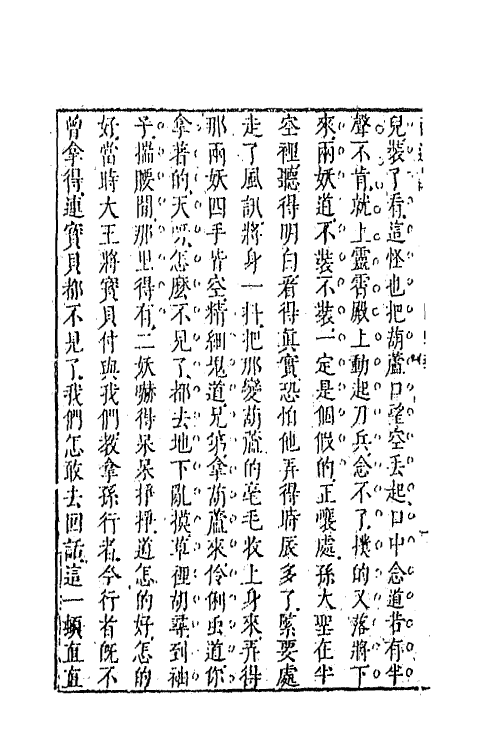 兒裝了看這怪也把葫蘆口望空丟起口中念道若有半
聲不肯就上靈霄殿上動起刀兵念不了撲的又落將下
來兩妖道不裝不裝一定是個假的正嚷處孫大聖在半
空裡聽得明白看得真實恐怕他弄得時辰多了緊要處
走了風訊將身一抖把那變葫蘆的毫毛收上身來弄得
那兩妖四手皆空精細鬼道兄弟拿葫蘆來伶俐虫道你
拿着的天呀怎麼不見了都去地下亂摸草裡胡尋到袖
子揣腰間那里得有二妖嚇得呆呆掙掙道怎的好怎的
好當時大王將寶貝付與我們教拿孫行者今行者既不
曾拿得連寶貝都不見了我們怎敢去回話這一頓直直